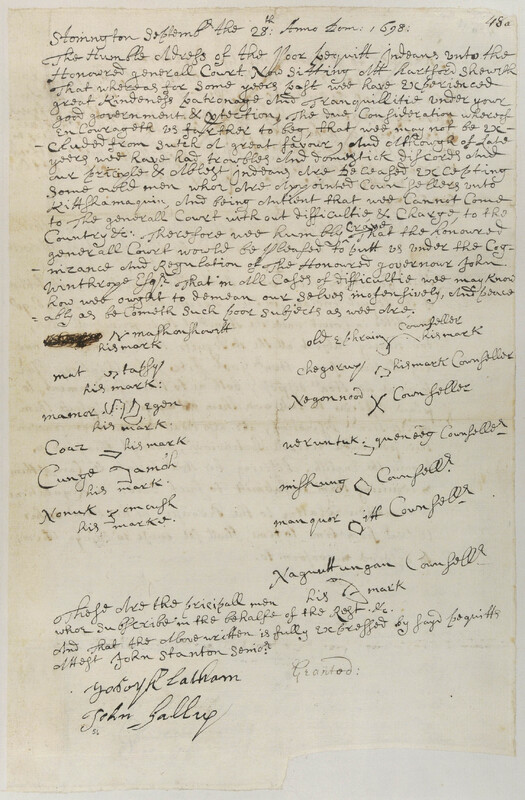 48a
Stonington Septembr the 28th: Anno Dom: 1698:
The Humble Adress of the Poor pequitt Indeans unto the
Honoured generall Court Now Sitting Att Hartford Sheweth
That whereas for Some yeers past wee have Experienced
great Kindeness patronage And Tranquillitie under your
good government & protection, The due Consideration whereof
Encourageth us farther to beg, that wee may not be Ex-
-cluded from Sutch A great favour, And Although of Late
yeers wee have had troubles And domestick discords And
our principle & Ablest Indeans Are deceased Excepting
Some ould men whoe Are Apointed Counsellers unto
Kittshamaquin, And being Antient that wee Cannot Come
to The generall Court without difficultie & Charge, to the
Country &c: Therefore wee humbly Crave That the honoured
generall Court would be pleased to putt us under the Cog-
-nizance And Regulation of The Honoured governour John
Winthrope Esqr That in All Cases of difficultie wee may know
how wee ought to demean our selves inofensively, And peace
-ably as becometh Such poor Subjects as wee Are.
maskonshowitt
his mark
old Ephraim Counseller
his mark
mut tathy
his mark:
chegorux his mark Counseller
mamor Egen
his mark
Negonnood Counseller
Coar his mark
neruntuk queneeg Counseller
Cunge Jamoh
his mark
miskung Counsellr
Nonuk omaush
his marke.
manquor itt Counsellr
Naguttungan Counsellr
his mark
These Are the pricipall men
whoe Subscribe in the behalfe of the Rest &c.
And That the Above written is fully Expressed by sayd pequitts
Attest John Stanton Senior
Latham
John Gallup
Granted: